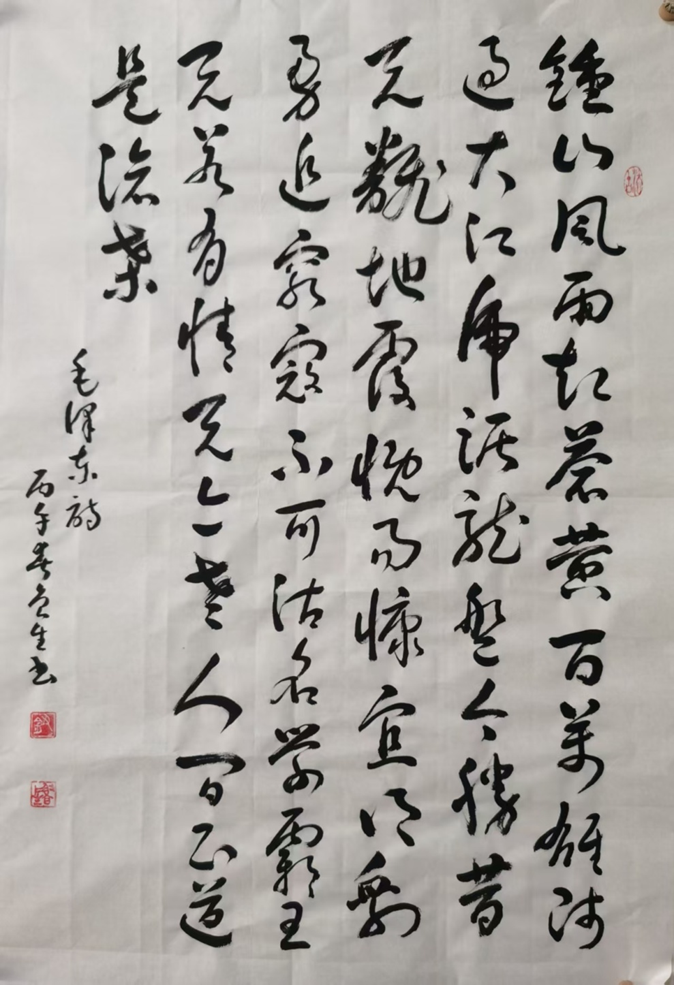 鍾山风雨起蒼黄百萬雄师
过大江虎踞龙盤今勝昔
天翻地覆慨而慷宜将剩
勇追窮寇不可沽名学霸王
天若有情天亦老人间正道
是滄桑
毛泽东诗
丙午春生书